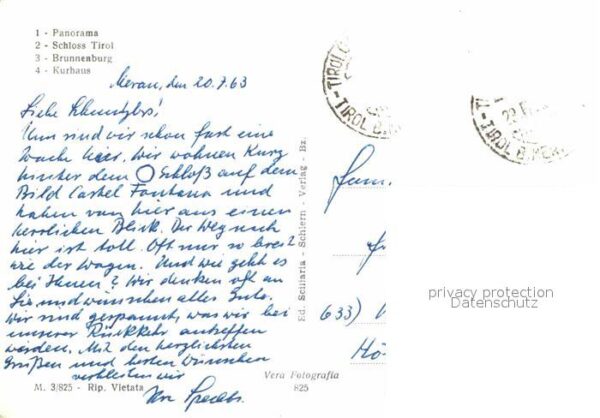 1 - Panorama
2 - Schloss Tirol
3 - Brunnenburg
4 - Kurhaus
Meran, den 20.7.63
Liebe
Nun sind wir schon fast eine
Woche hier. Wir wohnen kurz
hinter dem Schloß auf dem
Bild Castel Fontana und
haben von hier aus einen
herrlichen Blick. Der Weg nach
hier ist toll. Oft nur so breit
wie der Wagen. Und wie geht es
bei Ihnen? Wir denken oft an
Sie und wünschen alles Gute.
Wir sind gespannt, was wir bei
unserer Rückkehr antreffen
werden. Mit den herzlichsten
Grüßen und besten Wünschen
verbleiben wir
Ihre
M. 3/825 - Rip. Vietata
Ed. Sciliaria - Schlern - Verlag - Bz.
Vera Fotografia
825
TIROL
TIROL
TIROL
Fam.
633)
privacy protection
Datenschutz